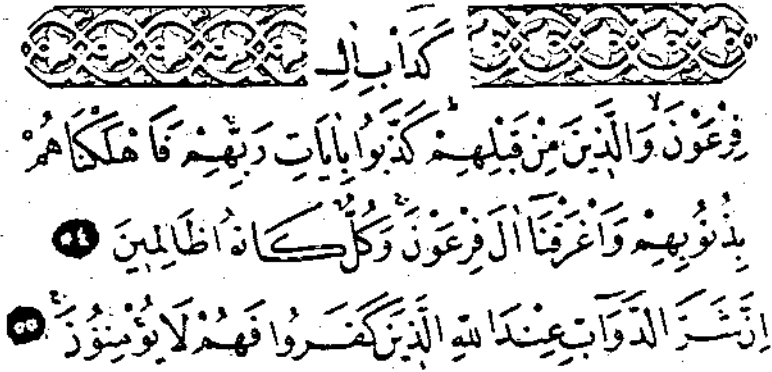 كَدَاْبِ اٰلِ
فِرْعَوْنَۙ وَالَّذٖينَ مِنْ قَبْلِهِمْؕ كَذَّبُوا بِاٰيَاتِ رَبِّهِمْ فَاَهْلَكْنَاهُمْ
بِذُنُوبِهِمْ وَاَغْرَقْنَٓا اٰلَ فِرْعَوْنَۚ وَكُلٌّ كَانُوا ظَالِمٖينَ ٥٤
اِنَّ شَرَّ الدَّوَٓابِّ عِنْدَ اللّٰهِ الَّذٖينَ كَفَرُوا فَهُمْ لَا يُؤْمِنُونَۚ ٥٥